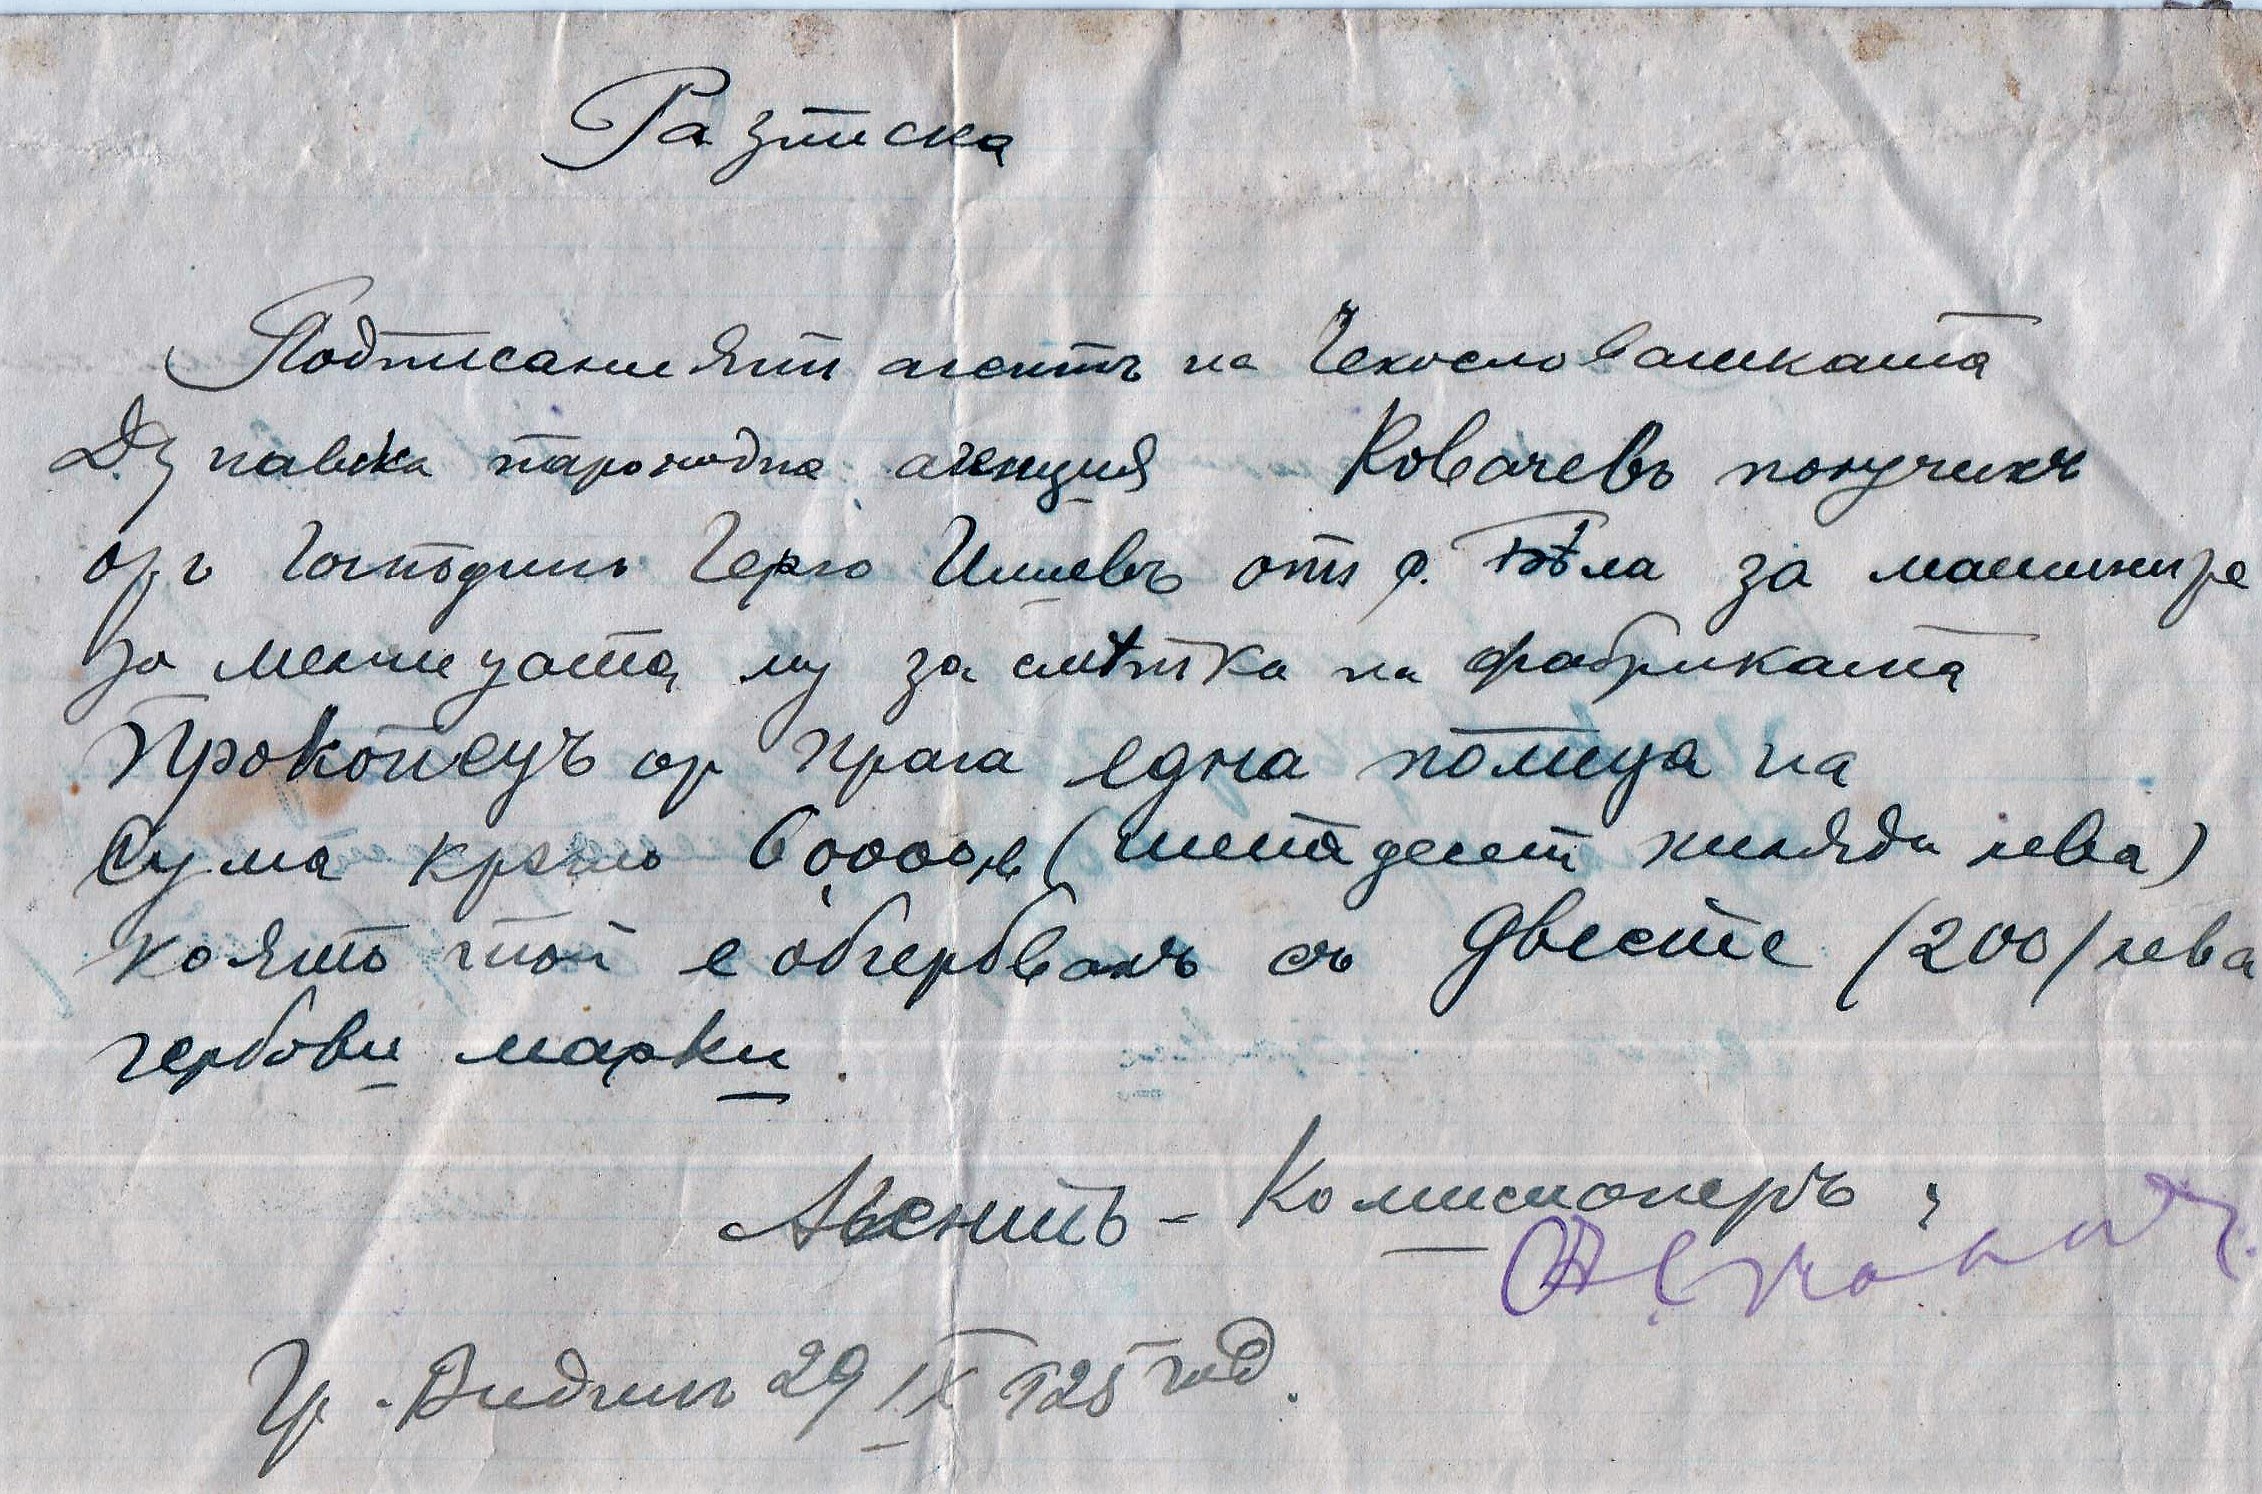 Разписка
Подписаниятъ агентъ на Чехословашката
Дунавска пароходна агенция Ковачевъ получихъ
отъ Господинъ Герго Илиевъ отъ с. Бѣла за
за мелницата му за смѣтка на фабриката
Прокопецъ от Прага една полица на
сума кръгло 60000 лв (шестдесетъ хиляди лева)
която той е обгербвалъ съ двесте /200/ лева
гербови марки.
Агентъ - Комисионеръ:
Гр. Видинъ 29 IX 925 год.